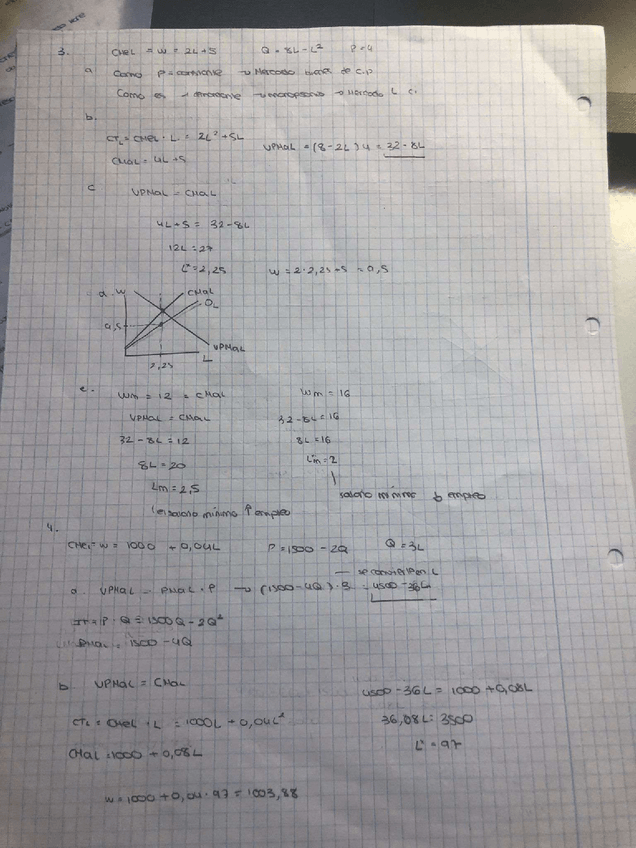 3. CMeL = W = 2L+5 Q = 8L - L² P=4
a. Como P = constante → Mercado bienes de C.P.
Como es → monopsonio → Mercado L C.
b.
CTL = CMeL · L = 2L² + 5L VPMaL = (8-2L)4 = 32-8L
CMaL = 4L+5
c VPMaL = CMaL
4L+5 = 32-8L
12L = 27
L* = 2,25 W = 2·2,25+5 = 9,5
d. W CMaL
OL
9,5
VPMaL
L
2,25
e. Wm = 12 = CMaL Wm = 16
VPMaL = CMaL 32-8L = 16
32-8L = 12 8L = 16
8L = 20 Lm = 2
Lm = 2,5 salario mínimo ↓ empleo
salario mínimo ↑ empleo
4.
CMeL = W = 1000 + 0,04L P = 1500 - 2Q Q = 3L
a. VPMaL = PMaL · P → (1500-4Q)·3 = 4500-36L
IT = P·Q = 1500Q - 2Q²
= 1500 - 4Q
b VPMaL = CMaL 4500-36L = 1000+0,08L
CTL = CMeL · L = 1000L + 0,04L² 36,08L = 3500
CMaL = 1000 + 0,08L L* = 97
W = 1000 + 0,04·97 = 1003,88